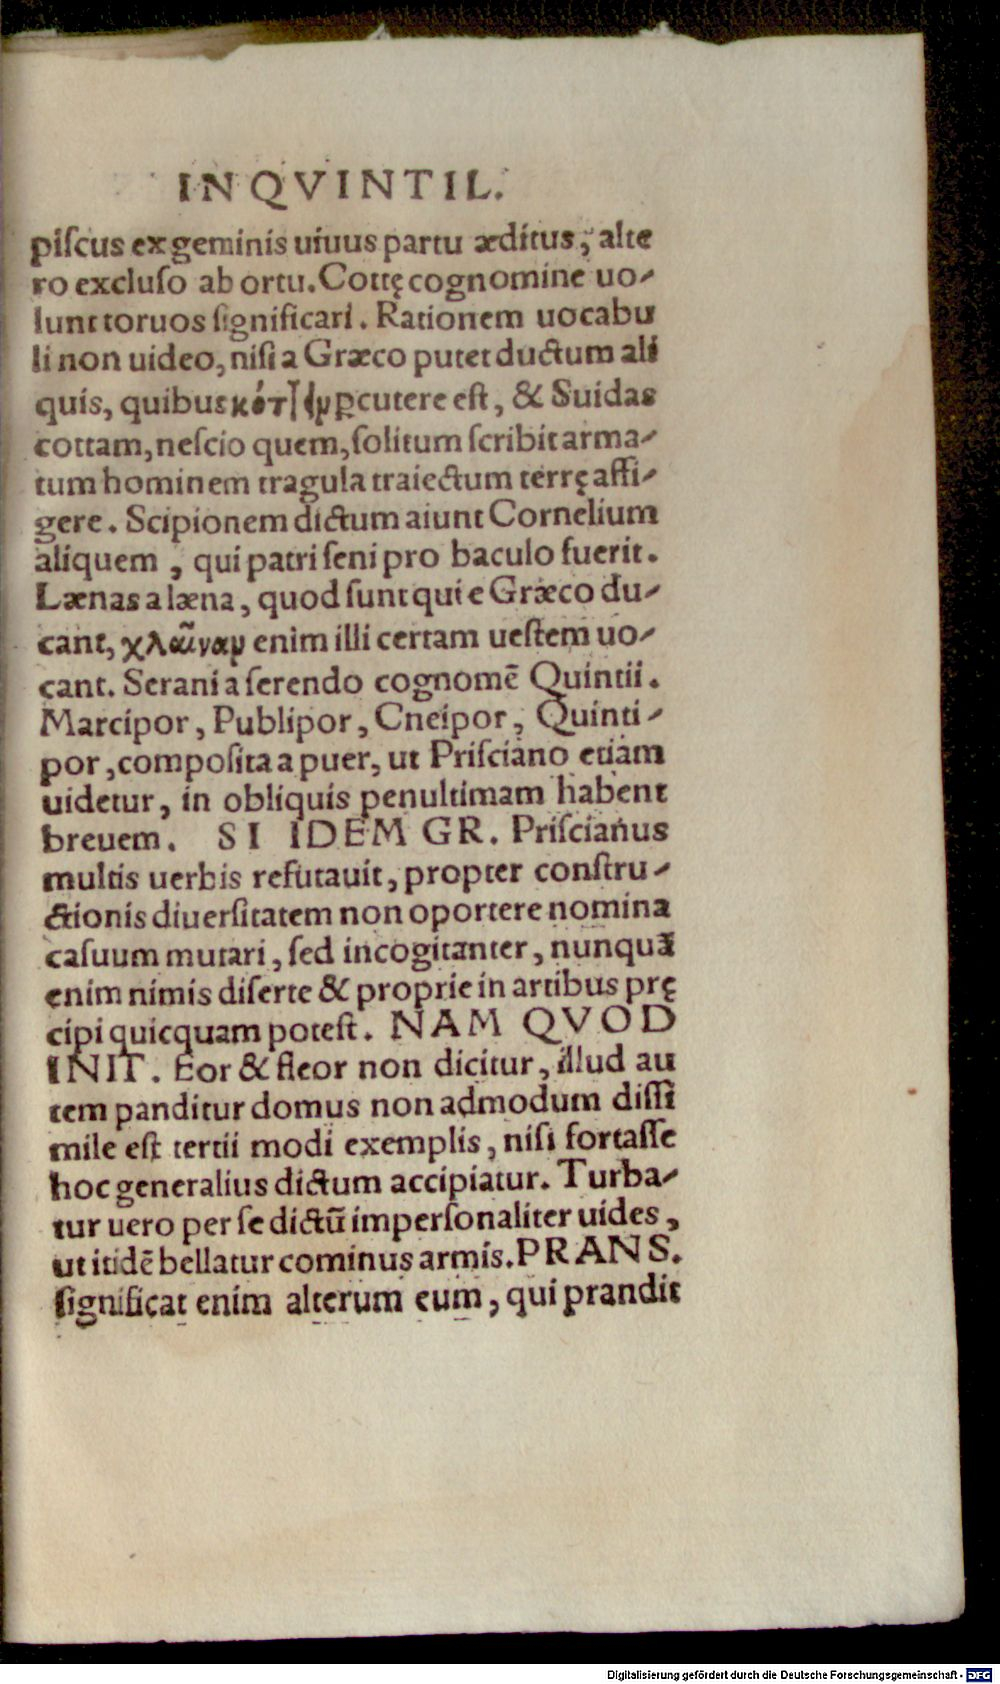 IN QVINTIL.
piſcus ex geminis uiuus partu æditus, alte
ro excluſo ab ortu. Cottę cognomine uo-
lunt toruos ſignificari. Rationem uocabu
li non uideo, niſi a Græco putet ductum ali
quis, quibus ꝑcutere eſt, & Suidas
cottam, neſcio quem, ſolitum ſcribit arma-
tum hominem tragula traiectum terrę affi-
gere. Scipionem dictum aiunt Cornelium
aliquem, qui patri ſeni pro baculo fuerit.
Lænas a læna, quod ſunt qui e Græco du-
cant, χλαῖναν enim illi certam ueſtem uo-
cant. Serani a ſerendo cognomẽ Quintii.
Marcipor, Publipor, Cneipor, Quinti-
por, compoſita a puer, ut Priſciano etiam
uidetur, in obliquis penultimam habent
breuem. SI IDEM GR. Priſcianus
multis uerbis refutauit, propter conſtru-
ctionis diuerſitatem non oportere nomina
caſuum mutari, ſed incogitanter, nunquã
enim nimis diſerte & proprie in artibus prę
cipi quicquam poteſt. NAM QVOD
INIT. Eor & fleor non dicitur, illud au
tem panditur domus non admodum diſſi
mile eſt tertii modi exemplis, niſi fortaſſe
hoc generalius dictum accipiatur. Turba-
tur uero per ſe dictũ imperſonaliter uides,
ut itidẽ bellatur cominus armis. PRANS.
ſignificat enim alterum eum, qui prandit
Digitalisierung gefördert durch die Deutsche Forschungsgemeinschaft - DFG